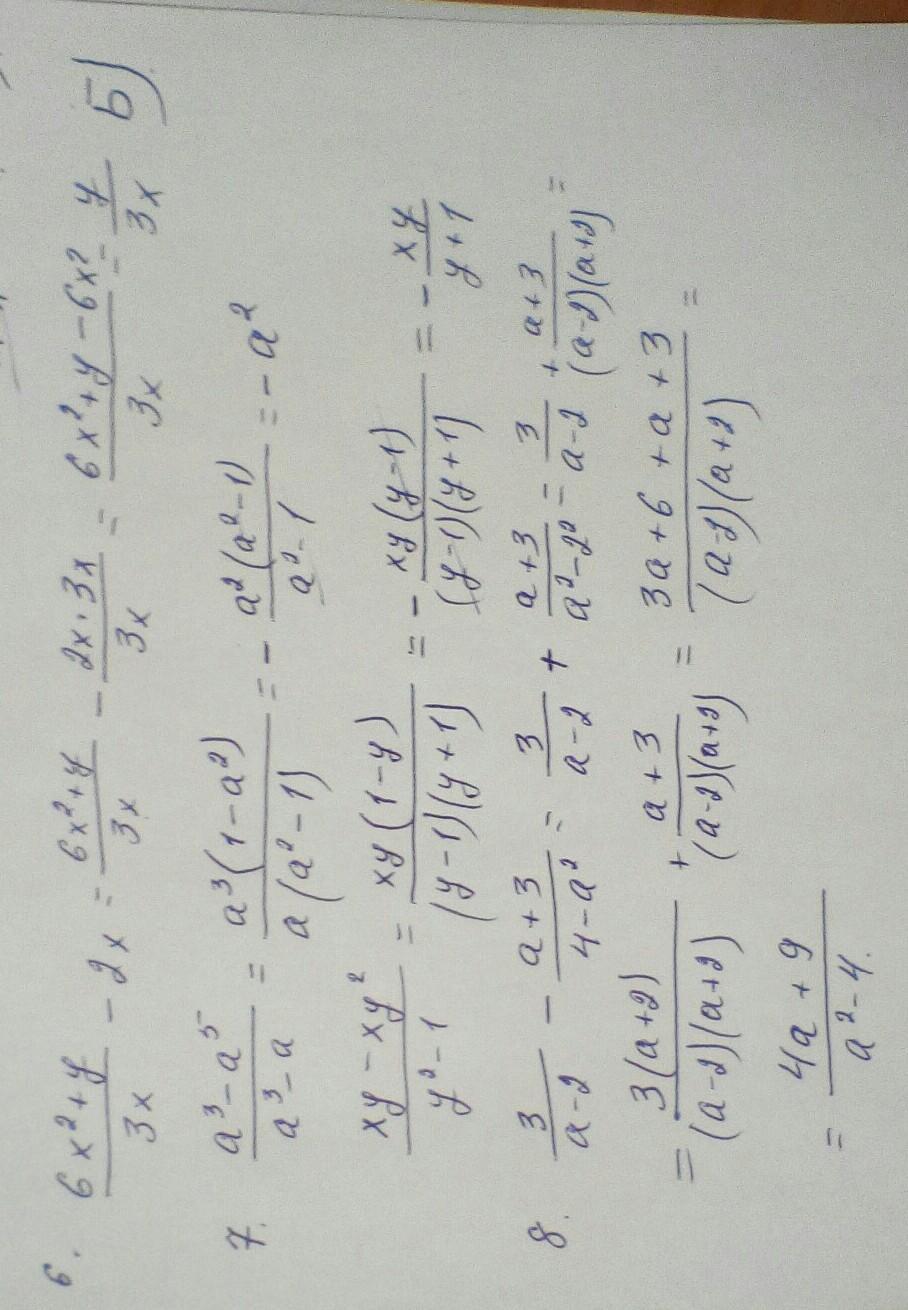 6. (6x²+y)/(3x) − 2x = (6x²+y)/(3x) − (2x·3x)/(3x) = (6x²+y−6x²)/(3x) = y/(3x) Б)
7. (a³−a⁵)/(a³−a) = (a³(1−a²))/(a(a²−1)) = −(a²(a²−1))/(a²−1) = −a²
(xy−xy²)/(y²−1) = (xy(1−y))/((y−1)(y+1)) = −(xy(y−1))/((y−1)(y+1)) = −(xy)/(y+1)
8. 3/(a−2) − (a+3)/(4−a²) = 3/(a−2) + (a+3)/(a²−2²) = 3/(a−2) + (a+3)/((a−2)(a+2)) =
= (3(a+2))/((a−2)(a+2)) + (a+3)/((a−2)(a+2)) = (3a+6+a+3)/((a−2)(a+2)) =
= (4a+9)/(a²−4).